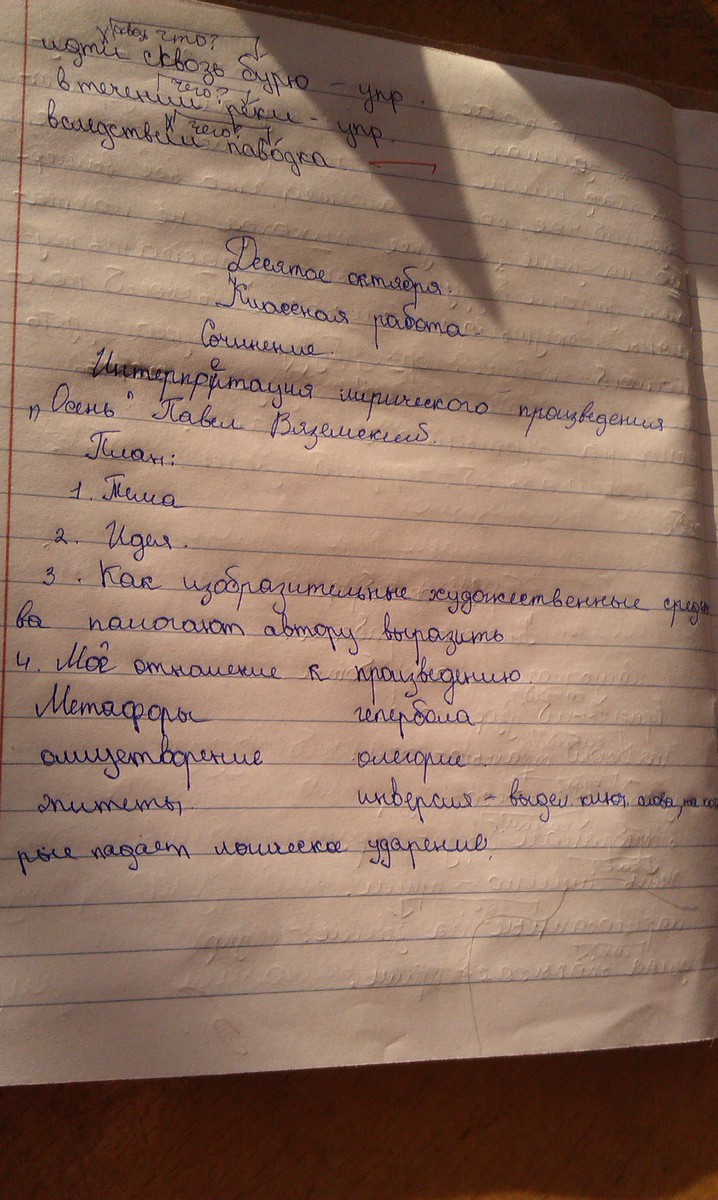 сквозь что?
идти сквозь бурю - упр.
чего?
в течении реки - упр.
чего?
вследствии паводка.
Десятое октября.
Классная работа.
Сочинение.
Интерпретация лирического произведения
„Осень" Павел Вяземский.
План:
1. Тема
2. Идея.
3. Как изобразительные художественные средст
ва помогают автору выразить
4. Моё отношение к произведению.
Метафоры гепербола
олицетворение олегорие
эпитеты. инверсия - выдел ключ. слова, на кот
рые падает логическое ударение.